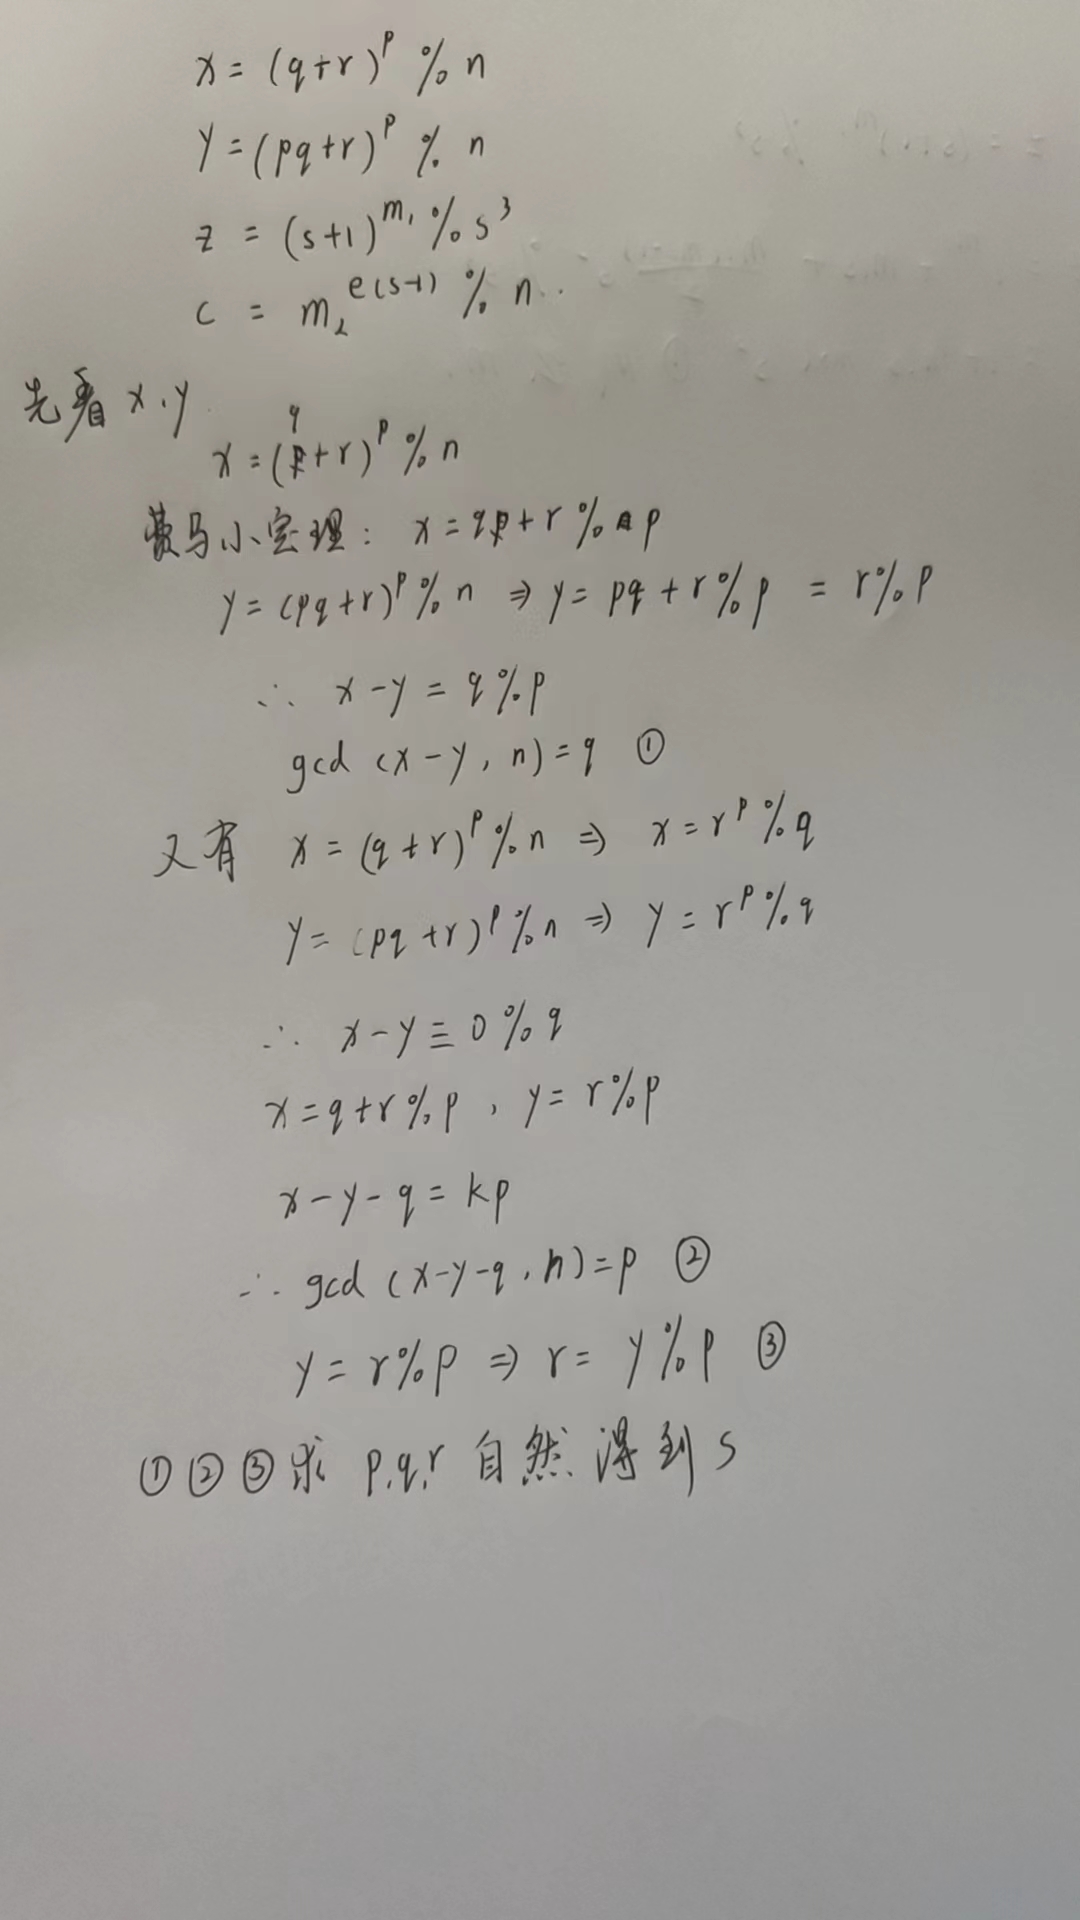 x = (q+r)^p % n
y = (pq+r)^p % n
z = (s+1)^m₁ % s³
c = m₂^e(s-1) % n.
先看 x.y
x = (q+r)^p % n
费马小定理: x = q+r % p
y = (pq+r)^p % n ⇒ y = pq + r % p = r % p
∴ x-y = q % p
gcd (x-y, n) = q ①
又有 x = (q+r)^p % n ⇒ x = r^p % q
y = (pq+r)^p % n ⇒ y = r^p % q
∴ x-y ≡ 0 % q
x = q+r % p , y = r % p
x-y-q = kp
∴ gcd (x-y-q, n) = p ②
y = r % p ⇒ r = y % p ③
①②③求 p.q.r 自然得到 s